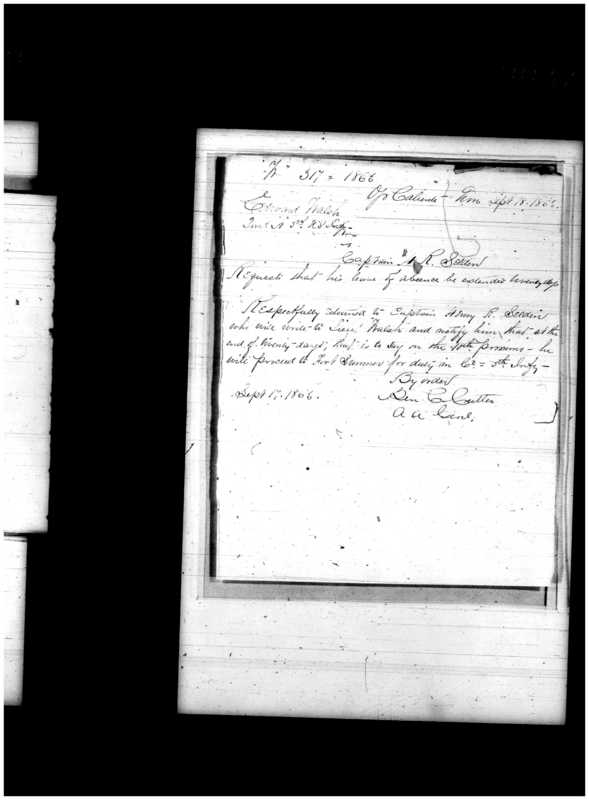 "W" 317 = 1866
Ojo Caliente - N.M. Sept 18. 1866.
Edward Walsh
Lieut. 5th U.S. Infy
Captain H. R. Selden
Requests that his leave of absence be extended twenty days
Respectfully returned to Captain Henry R. Selden
who will write to Lieut Walsh and notify him that at the
end of twenty days, that is to say on the proximo - he
will proceed to Fort Sumner for duty in Co = 5th Infy -
By order
Sept 17. 1866. Ben C. Cutler
A A Genl.